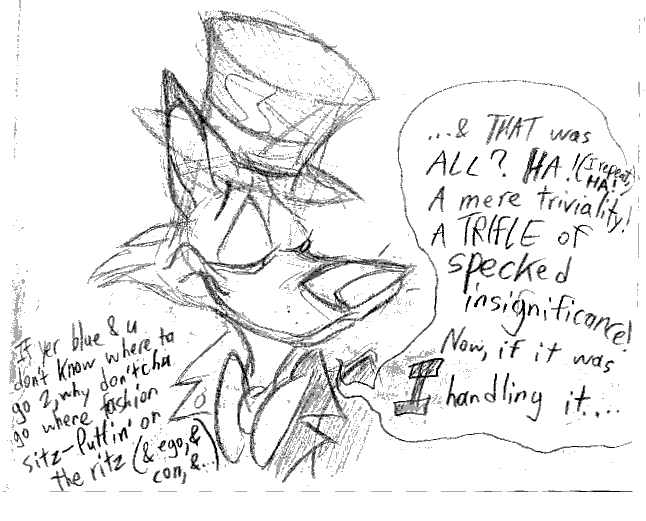 ...& THAT was
ALL? HA! (I repeat, HA!)
A mere triviality!
A TRIFLE OF
specked
insignificance!
Now, if it was
I handling
it....
If yer blue & u
don't know where to
go 2, why don'tcha
go where fashion
sitz-Puttin' on
the ritz (& ego, &
con, &...)